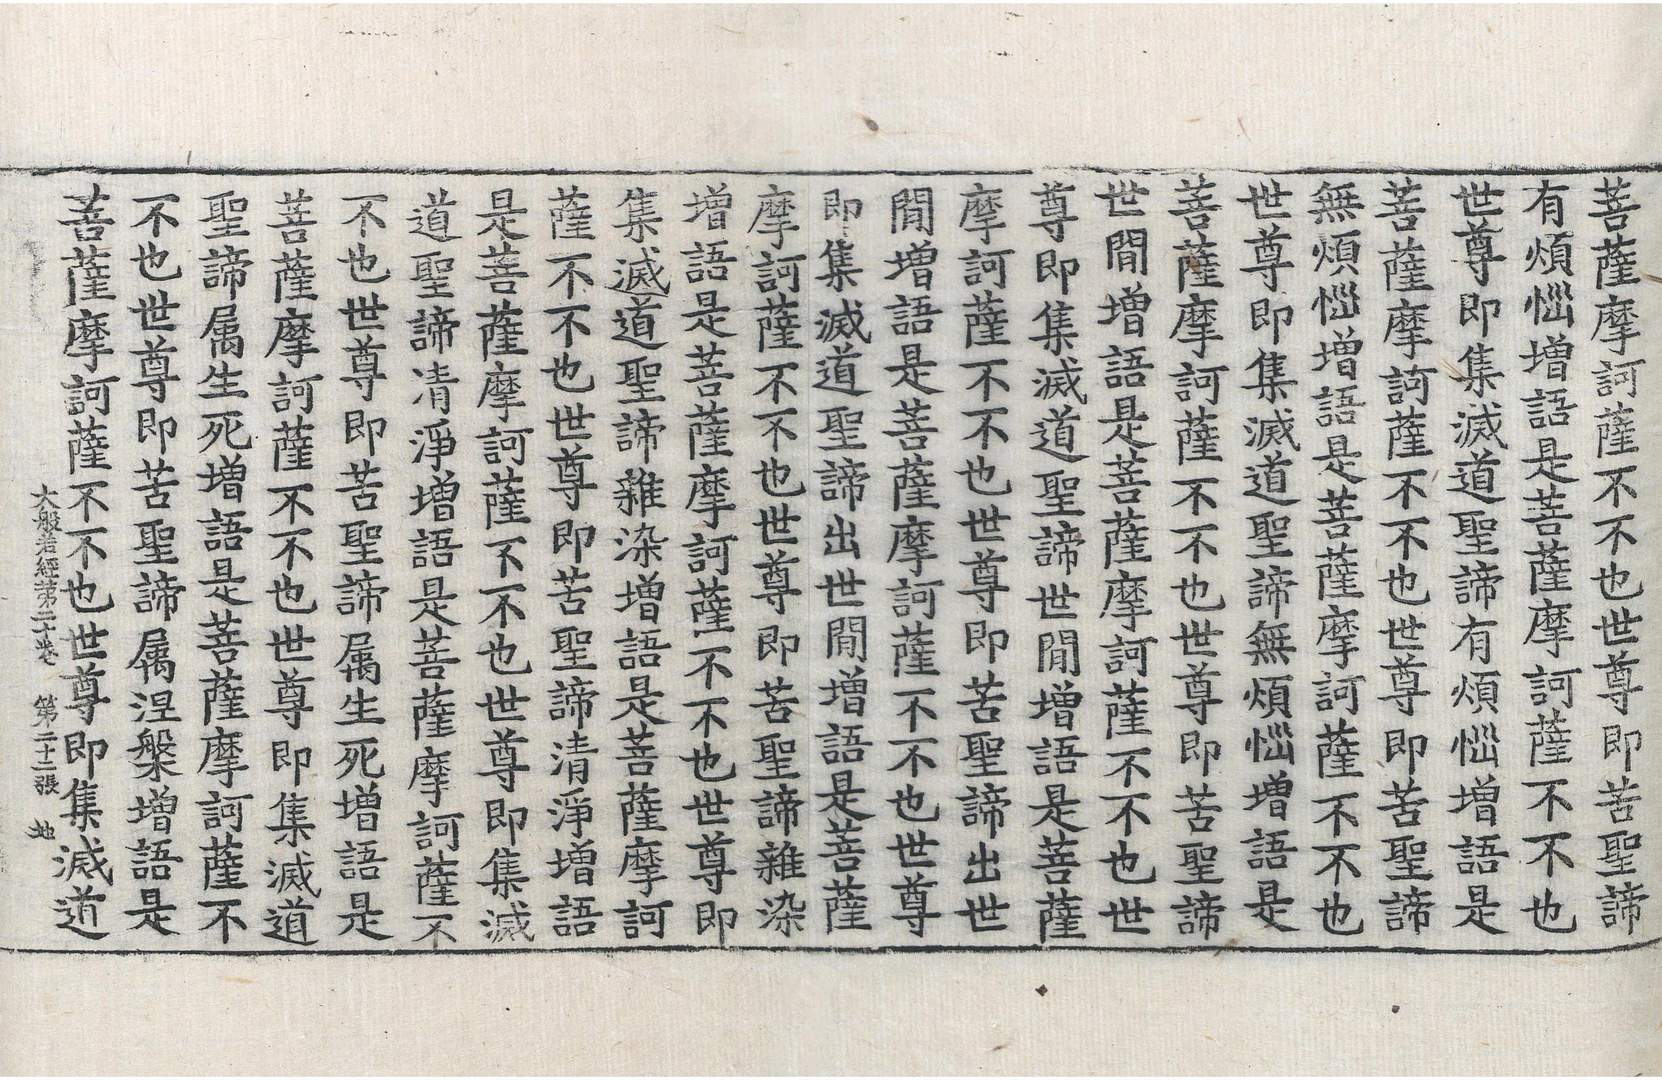 菩薩摩訶薩不不也世尊即苦聖諦
有煩惱增語是菩薩摩訶薩不不也
世尊即集滅道聖諦有煩惱增語是
菩薩摩訶薩不不也世尊即苦聖諦
無煩惱增語是菩薩摩訶薩不不也
世尊即集滅道聖諦無煩惱增語是
菩薩摩訶薩不不也世尊即苦聖諦
世間增語是菩薩摩訶薩不不也世
尊即集滅道聖諦世間增語是菩薩
摩訶薩不不也世尊即苦聖諦出世
間增語是菩薩摩訶薩不不也世尊
即集滅道聖諦出世間增語是菩薩
摩訶薩不不也世尊即苦聖諦雜染
增語是菩薩摩訶薩不不也世尊即
集滅道聖諦雜染增語是菩薩摩訶
薩不不也世尊即苦聖諦清淨增語
是菩薩摩訶薩不不也世尊即集滅
道聖諦清淨增語是菩薩摩訶薩不
不也世尊即苦聖諦属生死增語是
菩薩摩訶薩不不也世尊即集滅道
聖諦属生死增語是菩薩摩訶薩不
不也世尊即苦聖諦属涅槃增語是
菩薩摩訶薩不不也世尊即集滅道
大般若經第二十卷 第二十二張 地